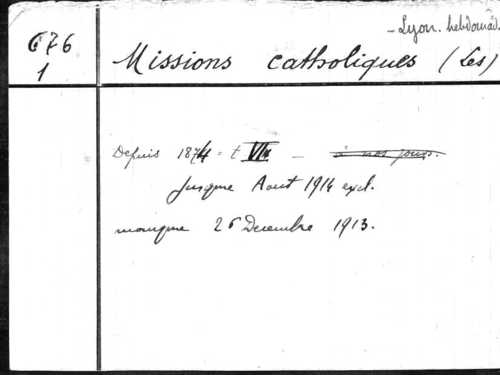 - Lyon. hebdomad.
676
1
Missions catholiques (Les)
Depuis 1874 = t VI - à nos jours.
jusque Aout 1914 excl.
manque 26 Decembre 1913.